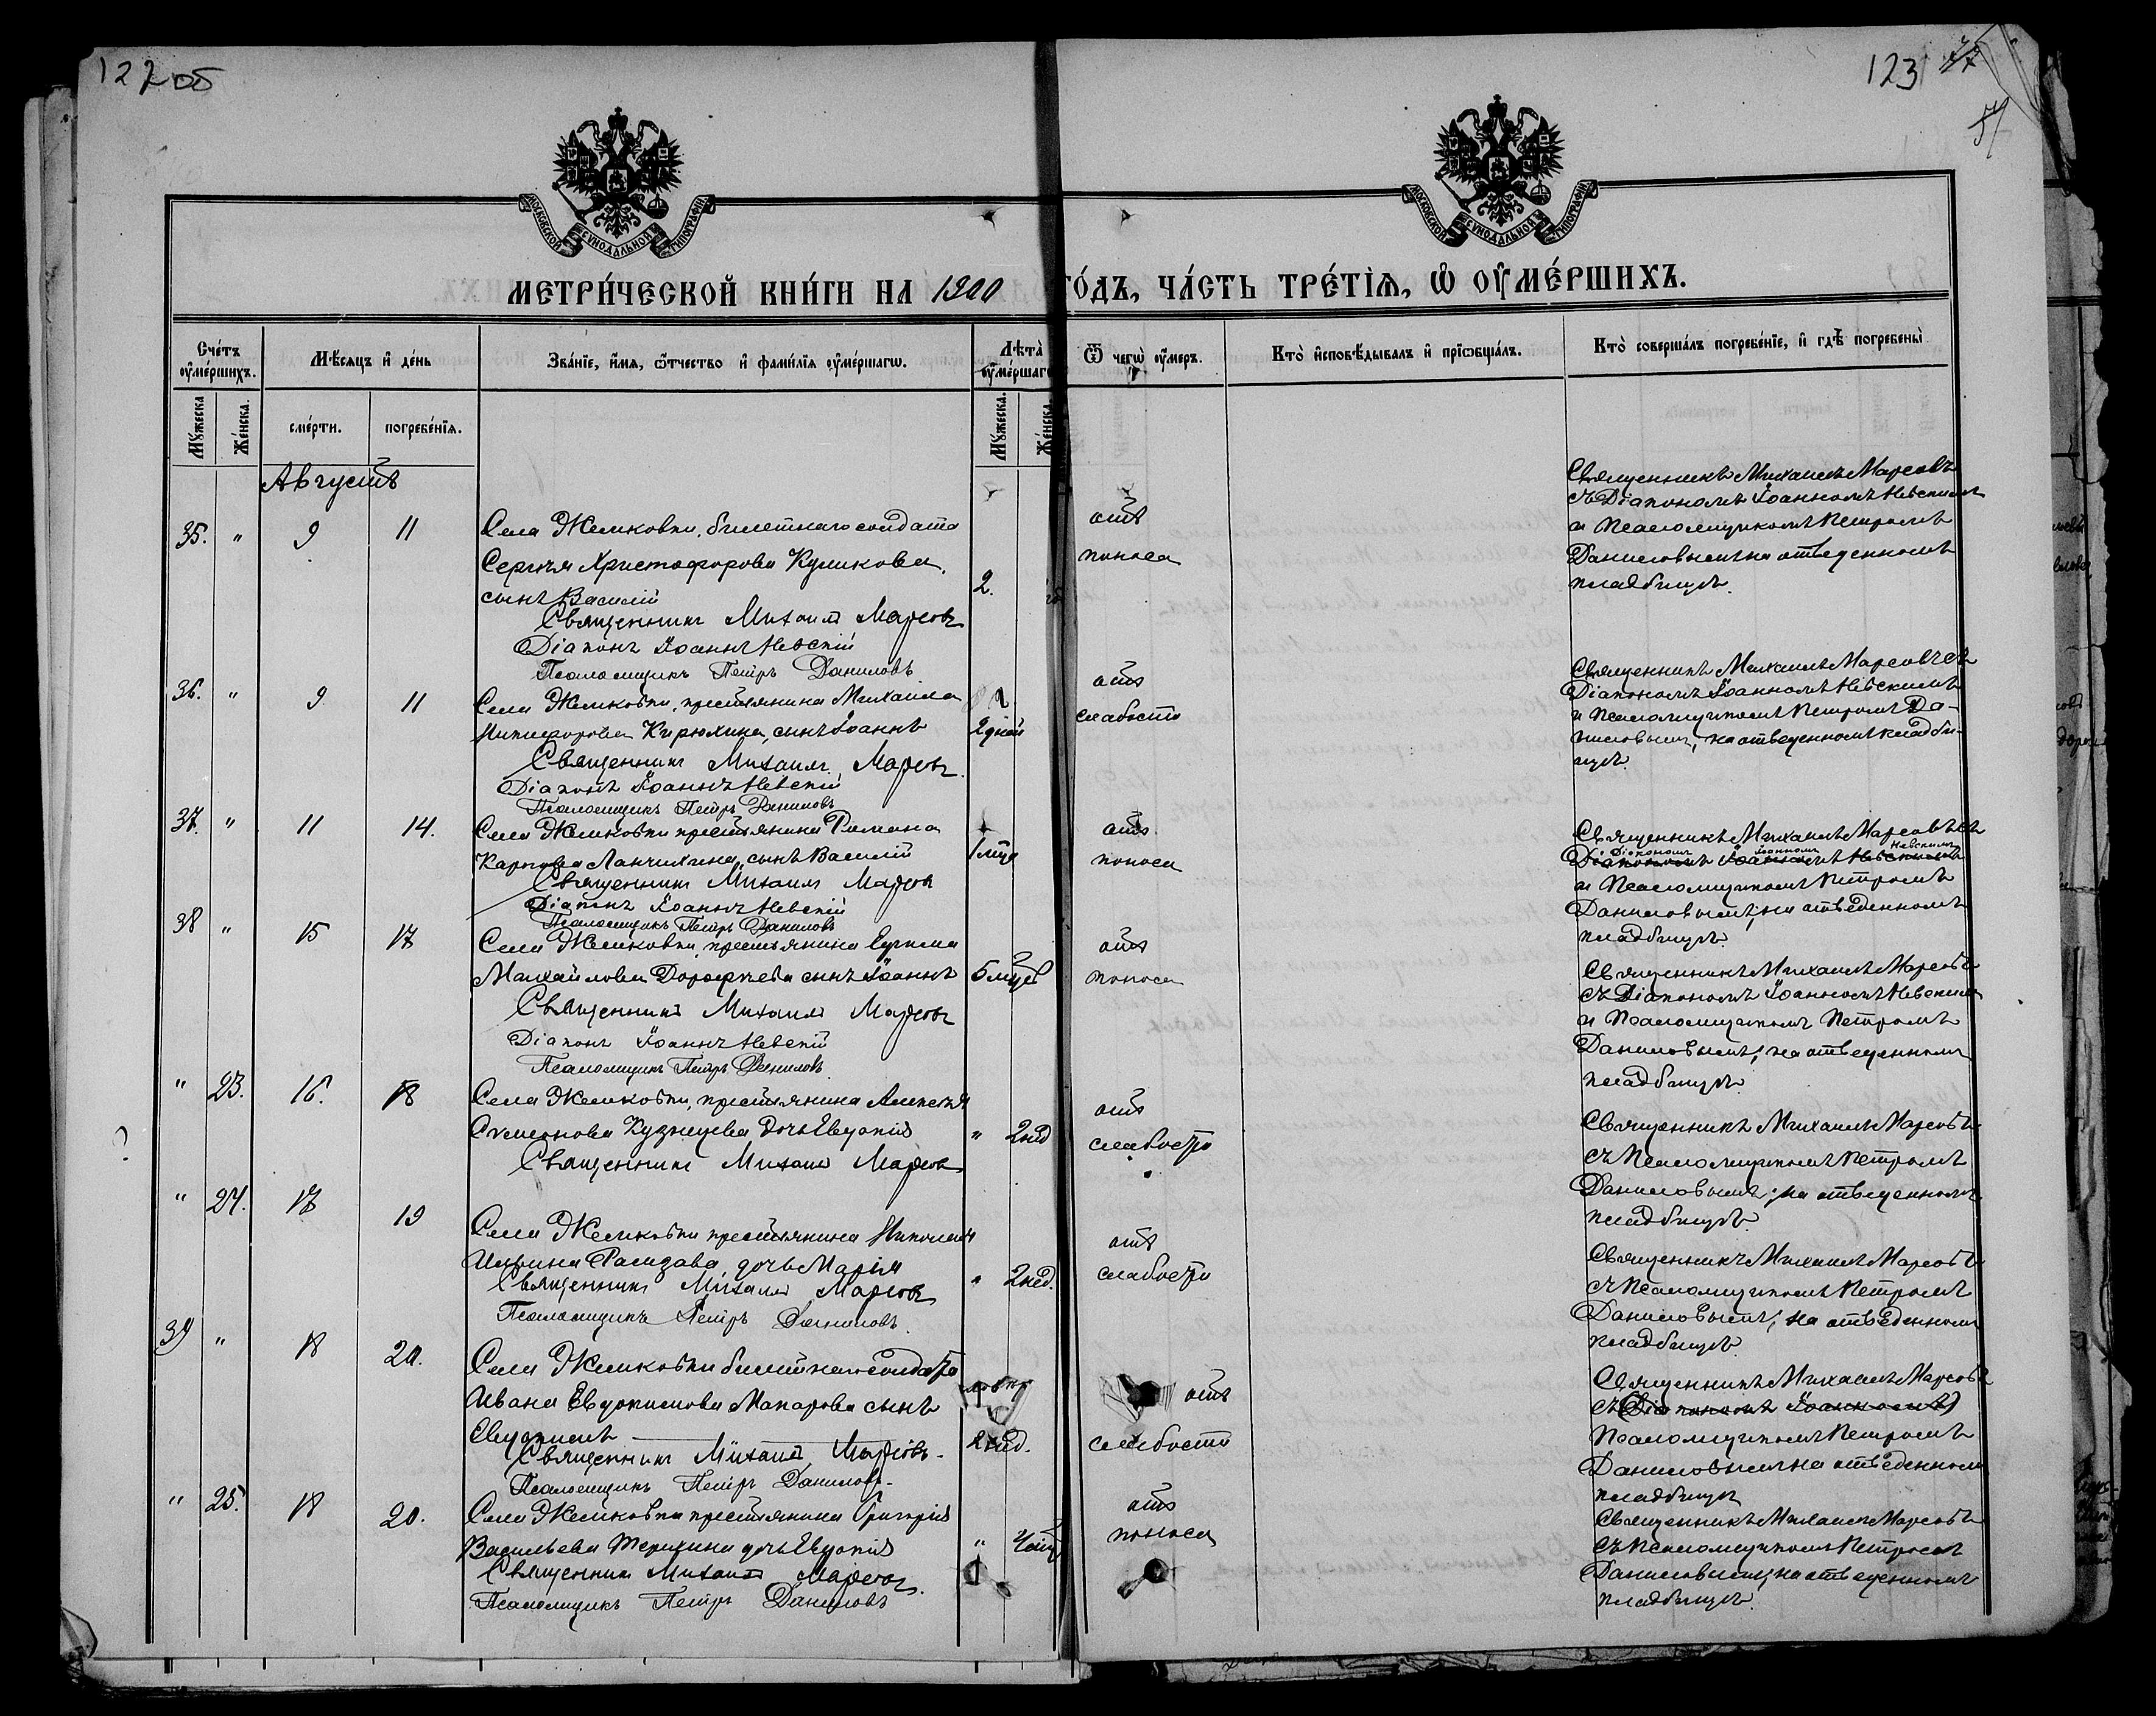 122 об
123
МОСКОВСКОЙ СѴНОДАЛЬНОЙ ТИПОГРАФІИ
МОСКОВСКОЙ СѴНОДАЛЬНОЙ ТИПОГРАФІИ
МЕТРИ́ЧЕСКОЙ КНИ́ГИ НА 1900 ГО́ДЪ, ЧА́СТЬ ТРЕ́ТІѦ, Ѡ ОУМЕ́РШИХЪ.
Сче́тъ оумершихъ.
Мѣсяцъ и день
Зва́ніе, и́мя, ѿчество и фами́лія оуме́ршагѡ.
Лѣта оумершагѡ
Ѿ чегѡ оумеръ.
Кто исповѣдывалъ и пріѡбщалъ.
Кто совершалъ погребеніе, и гдѣ погребены
Мужеска
Женска.
смерти.
погребенія.
Мужеска.
Женска.
Августъ
35. " 9 11
Села Жемковки, билетнаго солдата
Сергѣя Христофорова Куликова
сынъ Василій
2.
отъ
поноса
Священникъ Михаилъ Марсовъ
съ Діакономъ Іоанномъ Невскимъ
и Псаломщикомъ Петромъ
Даниловымъ на отведенномъ
кладбищѣ.
Священникъ Михаилъ Марсовъ
Діаконъ Іоаннъ Невскій
Псаломщикъ Петръ Даниловъ
36. " 9 11
Села Жемковки, крестьянина Михаила
Никифорова Кирюхина, сынъ Іоаннъ
2 дней
отъ
слабости
Священникъ Михаилъ Марсовъ съ
Діакономъ Іоанномъ Невскимъ
и Псаломщикомъ Петромъ Да-
ниловымъ, на отведенномъ кладби-
щѣ.
Священникъ Михаилъ Марсовъ
Діаконъ Іоаннъ Невскій
Псаломщикъ Петръ Даниловъ
37. " 11 14.
Села Жемковки крестьянина Романа
Карпова Ланчихина, сынъ Василій
1 мѣс
отъ
поноса
Священникъ Михаилъ Марсовъ съ
Діакономъ Іоанномъ Невскимъ
Діакономъ Іоанномъ Невскимъ
и Псаломщикомъ Петромъ
Даниловымъ, на отведенномъ
кладбищѣ.
Священникъ Михаилъ Марсовъ
Діаконъ Іоаннъ Невскій
Псаломщикъ Петръ Даниловъ
38 " 15 17
Села Жемковки, крестьянина
Михайлова Дорофѣева сынъ Іоаннъ
отъ
поноса
Священникъ Михаилъ Марсовъ
съ Діакономъ Іоанномъ Невскимъ
и Псаломщикомъ Петромъ
Даниловымъ, на отведенномъ
кладбищѣ.
Священникъ Михаилъ Марсовъ
Діаконъ Іоаннъ Невскій
Псаломщикъ Петръ Даниловъ
" 23. 16. 18
Села Жемковки, крестьянина Алексѣя
Симеонова Кузнецова дочь Евдокія
" 2 нед
отъ
слабости
Священникъ Михаилъ Марсовъ
съ Псаломщикомъ Петромъ
Даниловымъ, на отведенномъ
кладбищѣ.
Священникъ Михаилъ Марсовъ
" 24. 17 19
Села Жемковки крестьянина Николая
Ильина дочь Марія
" 2 нед.
отъ
слабости
Священникъ Михаилъ Марсовъ
съ Псаломщикомъ Петромъ
Даниловымъ, на отведенномъ
кладбищѣ.
Священникъ Михаилъ Марсовъ
Псаломщикъ Петръ Даниловъ
39 " 18 20.
Села Жемковки билетнаго солдата
Ивана Евдокимова Макарова сынъ
Евдокимъ
2 нед.
отъ
слабости
Священникъ Михаилъ Марсовъ
съ (Діакономъ Іоанномъ)
Псаломщикомъ Петромъ
Даниловымъ на отведенномъ
кладбищѣ
Священникъ Михаилъ Марсовъ
Псаломщикъ Петръ Даниловъ
" 25. 18 20.
Села Жемковки крестьянина Григорія
Васильева дочь Евдокія
"
отъ
поноса
Священникъ Михаилъ Марсовъ
съ Псаломщикомъ Петромъ
Даниловымъ, на отведенномъ
кладбищѣ.
Священникъ Михаилъ Марсовъ
Псаломщикъ Петръ Даниловъ